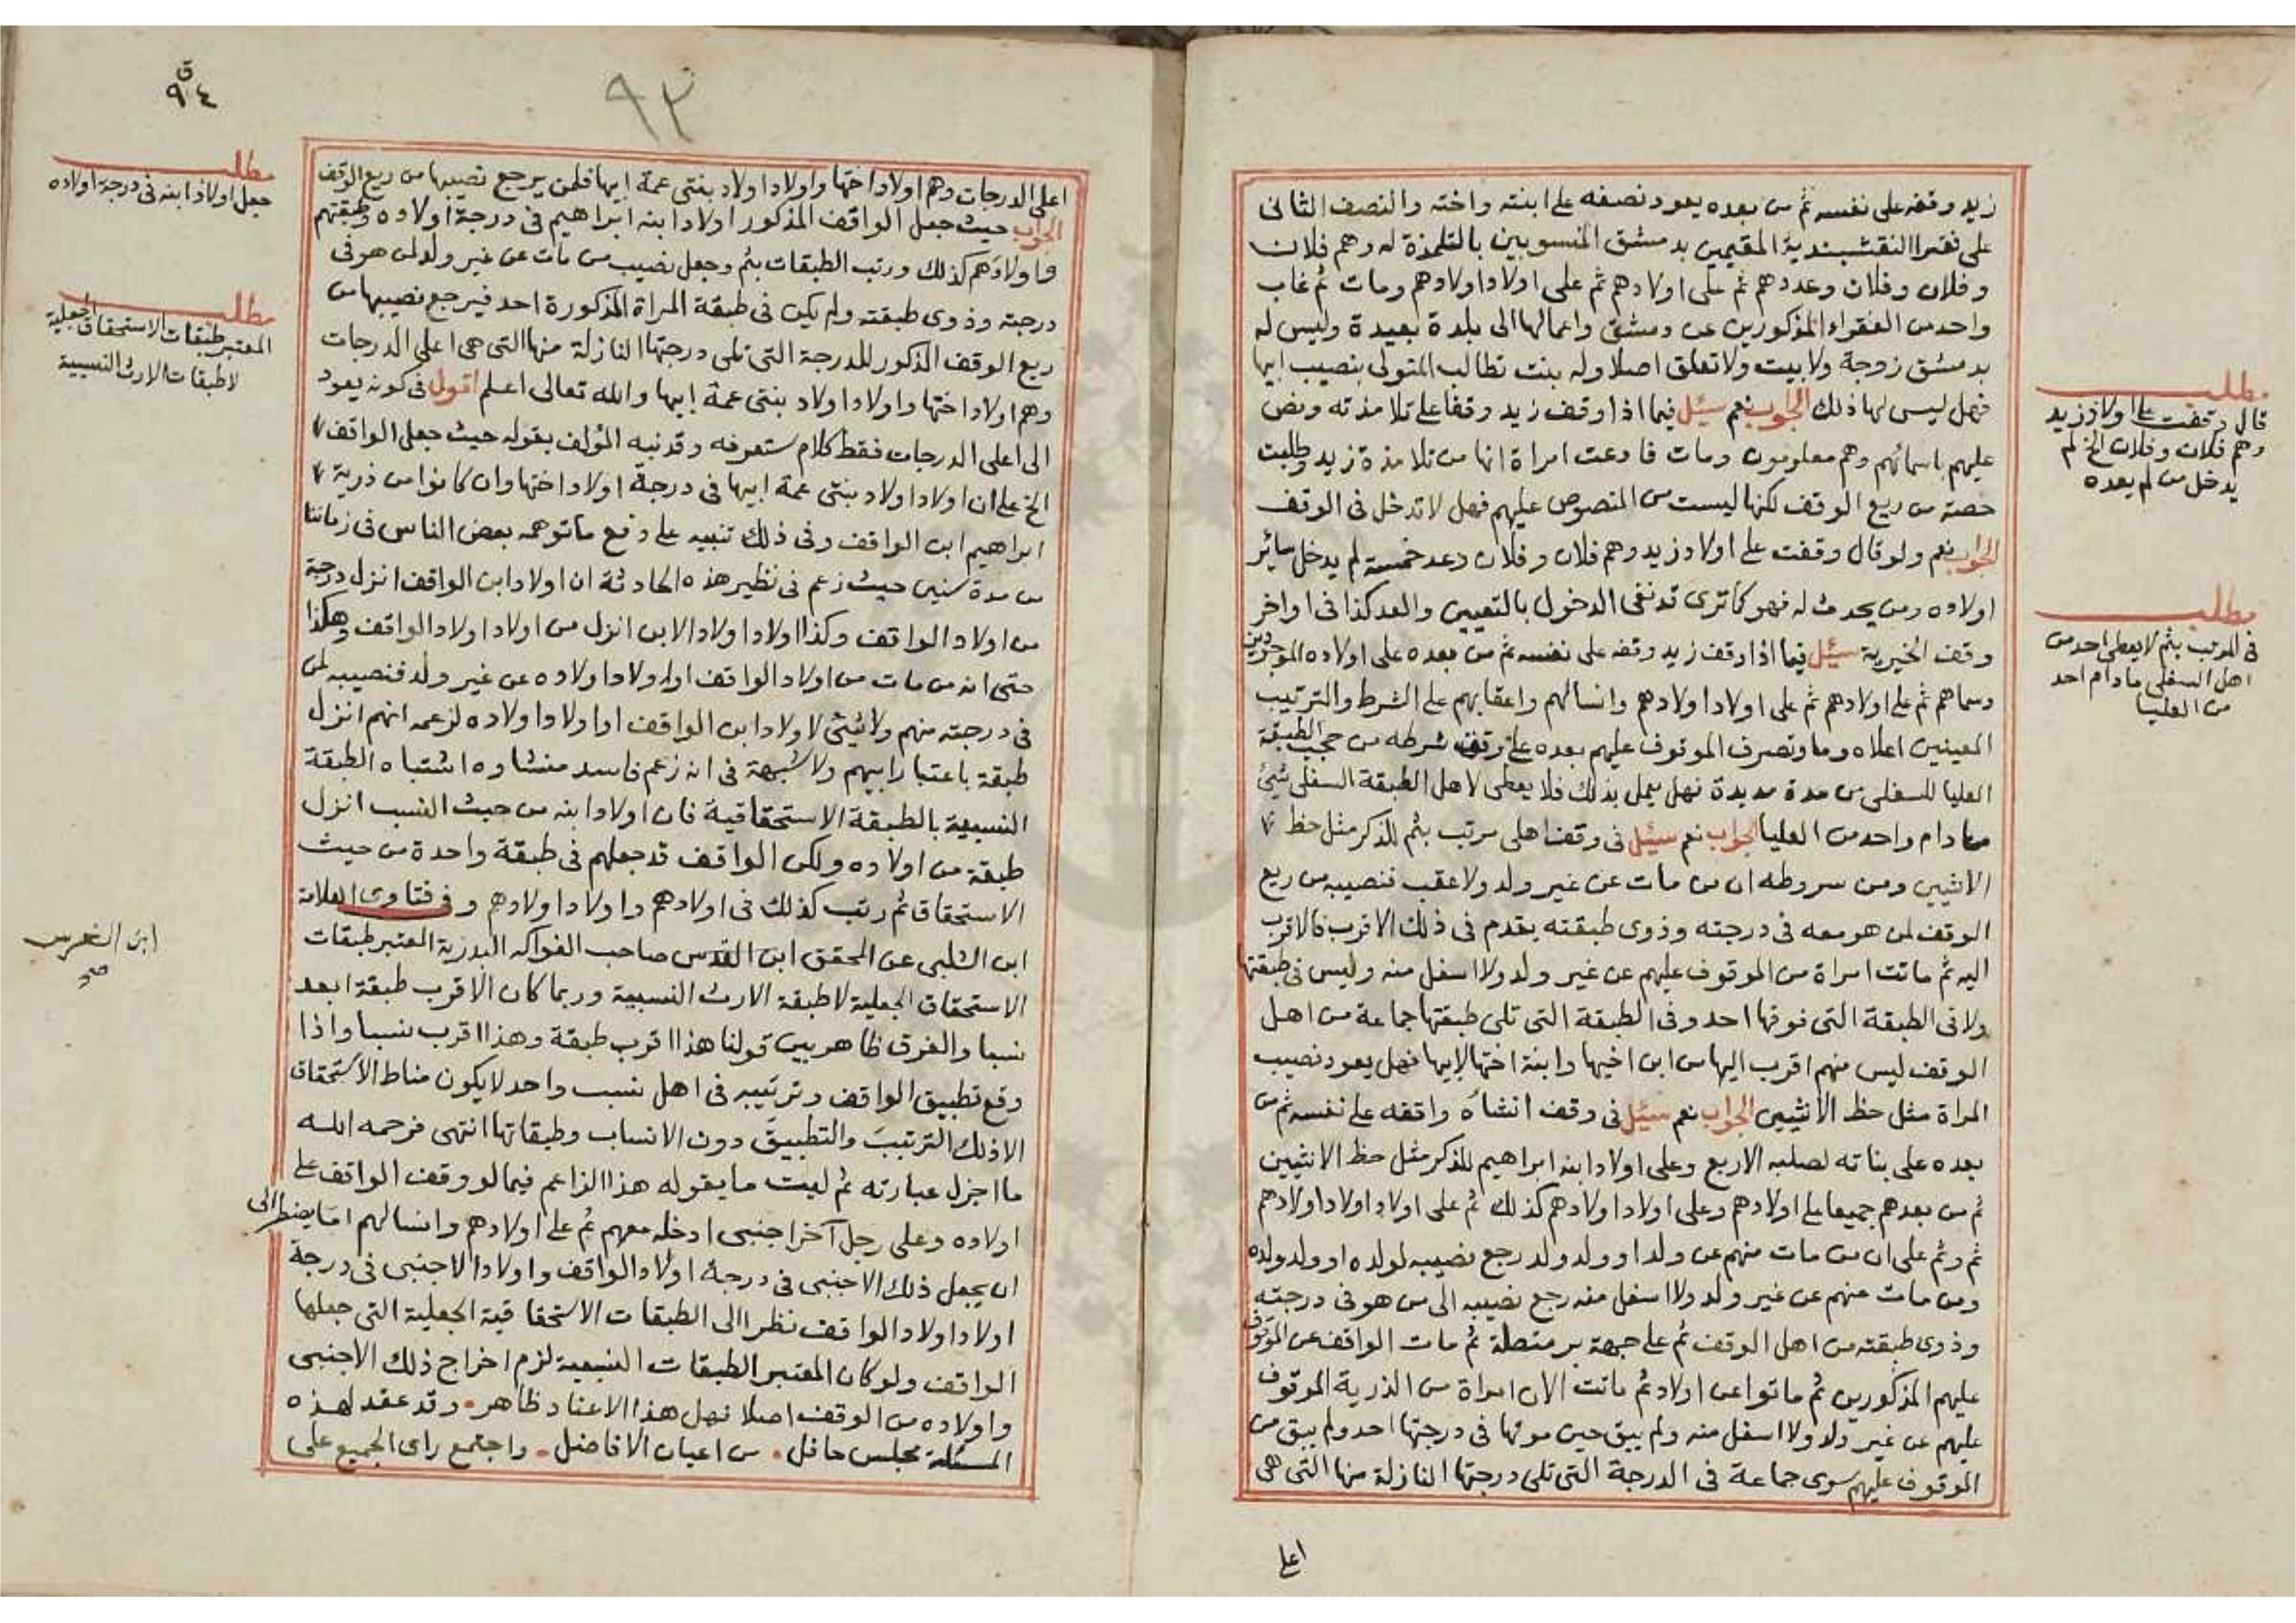 زيد وقفه على نفسه ثم من بعده يعود نصفه على ابنته واخته والنصف الثاني
على فقرا النقشبندية المقيمين بدمشق المنسوبين بالتلمذة له وهم فلان
وفلان وفلان وعددهم ثم على اولادهم ثم على اولاد اولادهم ومات ثم غاب
واحد من الفقراء المذكورين عن دمشق واعمالها الى بلدة بعيدة وليس له
بدمشق زوجة ولا بيت ولا تعلق اصلا وله بنت تطالب المتولى بنصيب ابيها
فهل ليس لها ذلك الجواب نعم سئل فيما اذا وقف زيد وقفا على تلامذته ونص
عليهم باسمائهم وهم معلومون ومات فادعت امراة انها من تلامذة زيد وطلبت
حصة من ريع الوقف لكنها ليست من المنصوص عليهم فهل لا تدخل في الوقف
الجواب نعم ولو قال وقفت على اولاد زيد وهم فلان وفلان وعد خمسة لم يدخل سائر
اولاده ومن يحدث له فهو كما ترى قد نفى الدخول بالتعيين والعد كذا في اواخر
وقف الخيرية سئل فيما اذا وقف زيد وقفه على نفسه ثم من بعده على اولاده الموجودين
وسماهم ثم على اولادهم ثم على اولاد اولادهم وانسالهم واعقابهم على الشرط والترتيب
المعينين اعلاه ومات وتصرف الموقوف عليهم بعده على وفق شرطه من حجب الطبقة
العليا للسفلى من مدة مديدة فهل يعمل بذلك فلا يعطى لاهل الطبقة السفلى شئ
ما دام واحد من العليا الجواب نعم سئل في وقف اهلى مرتب بثم للذكر مثل حظ
الانثيين ومن شروطه ان من مات عن غير ولد ولا عقب فنصيبه من ريع
الوقف لمن هو معه في درجته وذوى طبقته يقدم في ذلك الاقرب فالاقرب
اليه ثم ماتت امراة من الموقوف عليهم عن غير ولد ولا اسفل منه وليس في طبقتها
ولا في الطبقة التى فوقها احد وفي الطبقة التى تلى طبقتها جماعة من اهل
الوقف ليس منهم اقرب اليها من ابن اخيها وابنة اختها لابيها فهل يعود نصيب
المراة مثل حظ الانثيين الجواب نعم سئل في وقف انشاه واقفه على نفسه ثم من
بعده على بناته لصلبه الاربع وعلى اولاد ابنه ابراهيم للذكر مثل حظ الانثيين
ثم من بعدهم جميعا على اولادهم وعلى اولاد اولادهم كذلك ثم على اولاد اولاد اولادهم
ثم وثم على ان من مات منهم عن ولد او ولد ولد رجع نصيبه لولده او ولد ولده
ومن مات منهم عن غير ولد ولا اسفل منه رجع نصيبه الى من هو في درجته
وذوى طبقته من اهل الوقف ثم على جهة بر متصلة ثم مات الواقف عن الموقوف
عليهم المذكورين ثم ماتوا عن اولاد ثم ماتت الان امراة من الذرية الموقوف
عليهم عن غير ولد ولا اسفل منه ولم يبق حين موتها في درجتها احد ولم يبق من
الموقوف عليهم سوى جماعة في الدرجة التى تلى درجتها النازلة منها التى هى
اعلى
مطلب
قال وقفت على اولاد زيد
وهم فلان وفلان الخ لم
يدخل من لم يعده
مطلب
في المرتب بثم لا يعطى احد من
اهل السفلى ما دام احد
من العليا
ق
٩٤
٩٣
اعلى الدرجات وهم اولاد اختها واولاد اولاد بنتى عمة ابيها فلمن يرجع نصيبها من ريع الوقف
الجواب حيث جعل الواقف المذكور اولاد ابنه ابراهيم في درجة اولاده وطبقتهم
واولادهم كذلك ورتب الطبقات بثم وجعل نصيب من مات عن غير ولد لمن هو في
درجته وذوى طبقته ولم يكن في طبقة المراة المذكورة احد فيرجع نصيبها من
ريع الوقف المذكور للدرجة التى تلى درجتها النازلة منها التى هى اعلى الدرجات
وهم اولاد اختها واولاد اولاد بنتى عمة ابيها والله تعالى اعلم اقول في كونه يعود
الى اعلى الدرجات فقط كلام ستعرفه وقد نبه المؤلف بقوله حيث جعل الواقف
الخ على ان اولاد اولاد بنتى عمة ابيها في درجة اولاد اختها وان كانوا من ذرية
ابراهيم ابن الواقف وفي ذلك تنبيه على دفع ما توهمه بعض الناس في زماننا
من مدة سنين حيث زعم في نظير هذه الحادثة ان اولاد ابن الواقف انزل درجة
من اولاد الواقف وكذا اولاد اولاد الابن انزل من اولاد اولاد الواقف وهكذا
حتى انه من مات من اولاد الواقف او اولاد اولاده عن غير ولد فنصيبه لمن
في درجته منهم ولا شئ لاولاد ابن الواقف او اولاد اولاده لزعمه انهم انزل
طبقة باعتبار ابيهم ولا شبهة في انه زعم فاسد منشاوه اشتباه الطبقة
النسبية بالطبقة الاستحقاقية فان اولاد ابنه من حيث النسب انزل
طبقة من اولاده ولكن الواقف قد جعلهم في طبقة واحدة من حيث
الاستحقاق ثم رتب كذلك في اولادهم واولاد اولادهم وفي فتاوى العلامة
ابن الشلبى عن المحقق ابن الغرس صاحب الفواكه البدرية المعتبر طبقات
الاستحقاق الجعلية لا طبقة الارث النسبية وربما كان الاقرب طبقة ابعد
نسبا والفرق ظاهر بين قولنا هذا اقرب طبقة وهذا اقرب نسبا واذا
وقع تطبيق الواقف وترتيبه في اهل نسب واحد لا يكون مناط الاستحقاق
الا ذلك الترتيب والتطبيق دون الانساب وطبقاتها انتهى فرحمه الله
ما اجزل عبارته ثم ليت ما يقوله هذا الزاعم فيما لو وقف الواقف على
اولاده وعلى رجل آخر اجنبى ادخله معهم ثم على اولادهم وانسالهم اما يضطر الى
ان يجعل ذلك الاجنبى في درجة اولاد الواقف واولاد الاجنبى في درجة
اولاد اولاد الواقف نظرا الى الطبقات الاستحقاقية الجعلية التى جعلها
الواقف ولو كان المعتبر الطبقات النسبية لزم اخراج ذلك الاجنبى
واولاده من الوقف اصلا فهل هذا الا عناد ظاهر وقد عقد لهذه
المسئلة مجلس حافل من اعيان الافاضل واجتمع راى الجميع على
مطلب
جعل اولاد ابنه في درجة اولاده
مطلب
المعتبر طبقات الاستحقاق الجعلية
لا طبقات الارث النسبية
ابن الغرس
صح